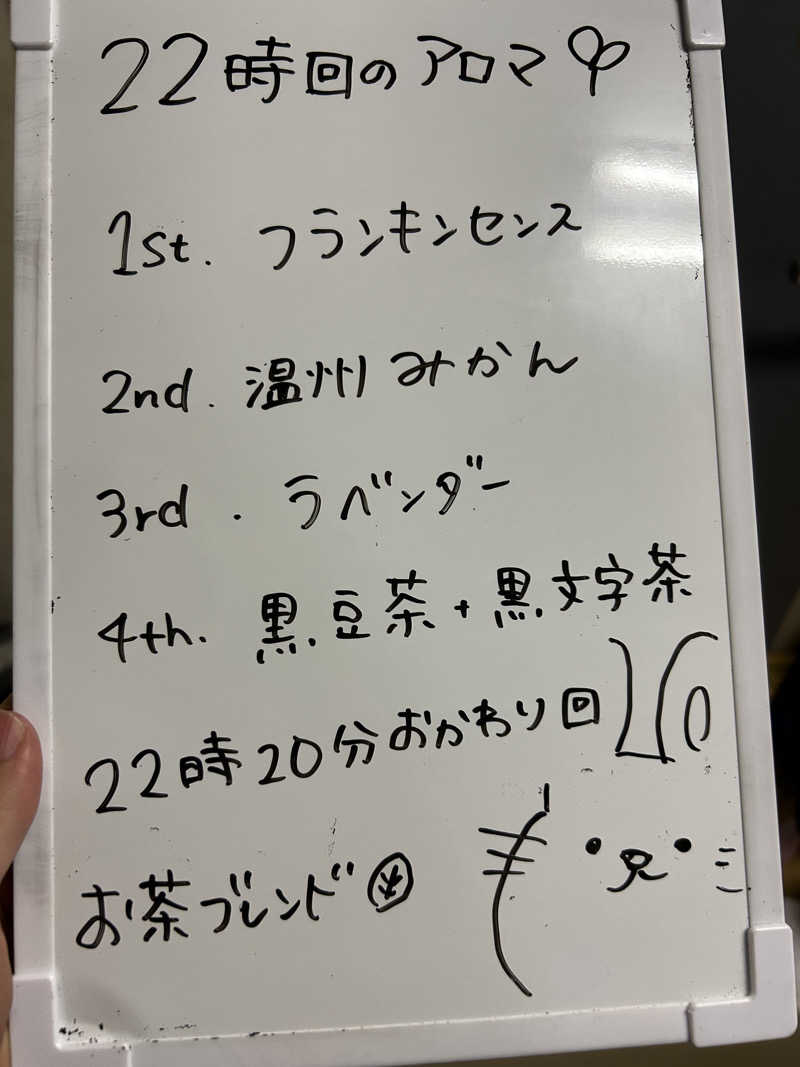 22時回のアロマ
1st. フランキンセンス
2nd. 温州みかん
3rd. ラベンダー
4th. 黒豆茶+黒文字茶
22時20分おかわり回
お茶ブレンド